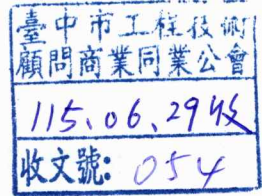 臺中市工程技術
顧問商業同業公會
115.06.29收
收文號: 054